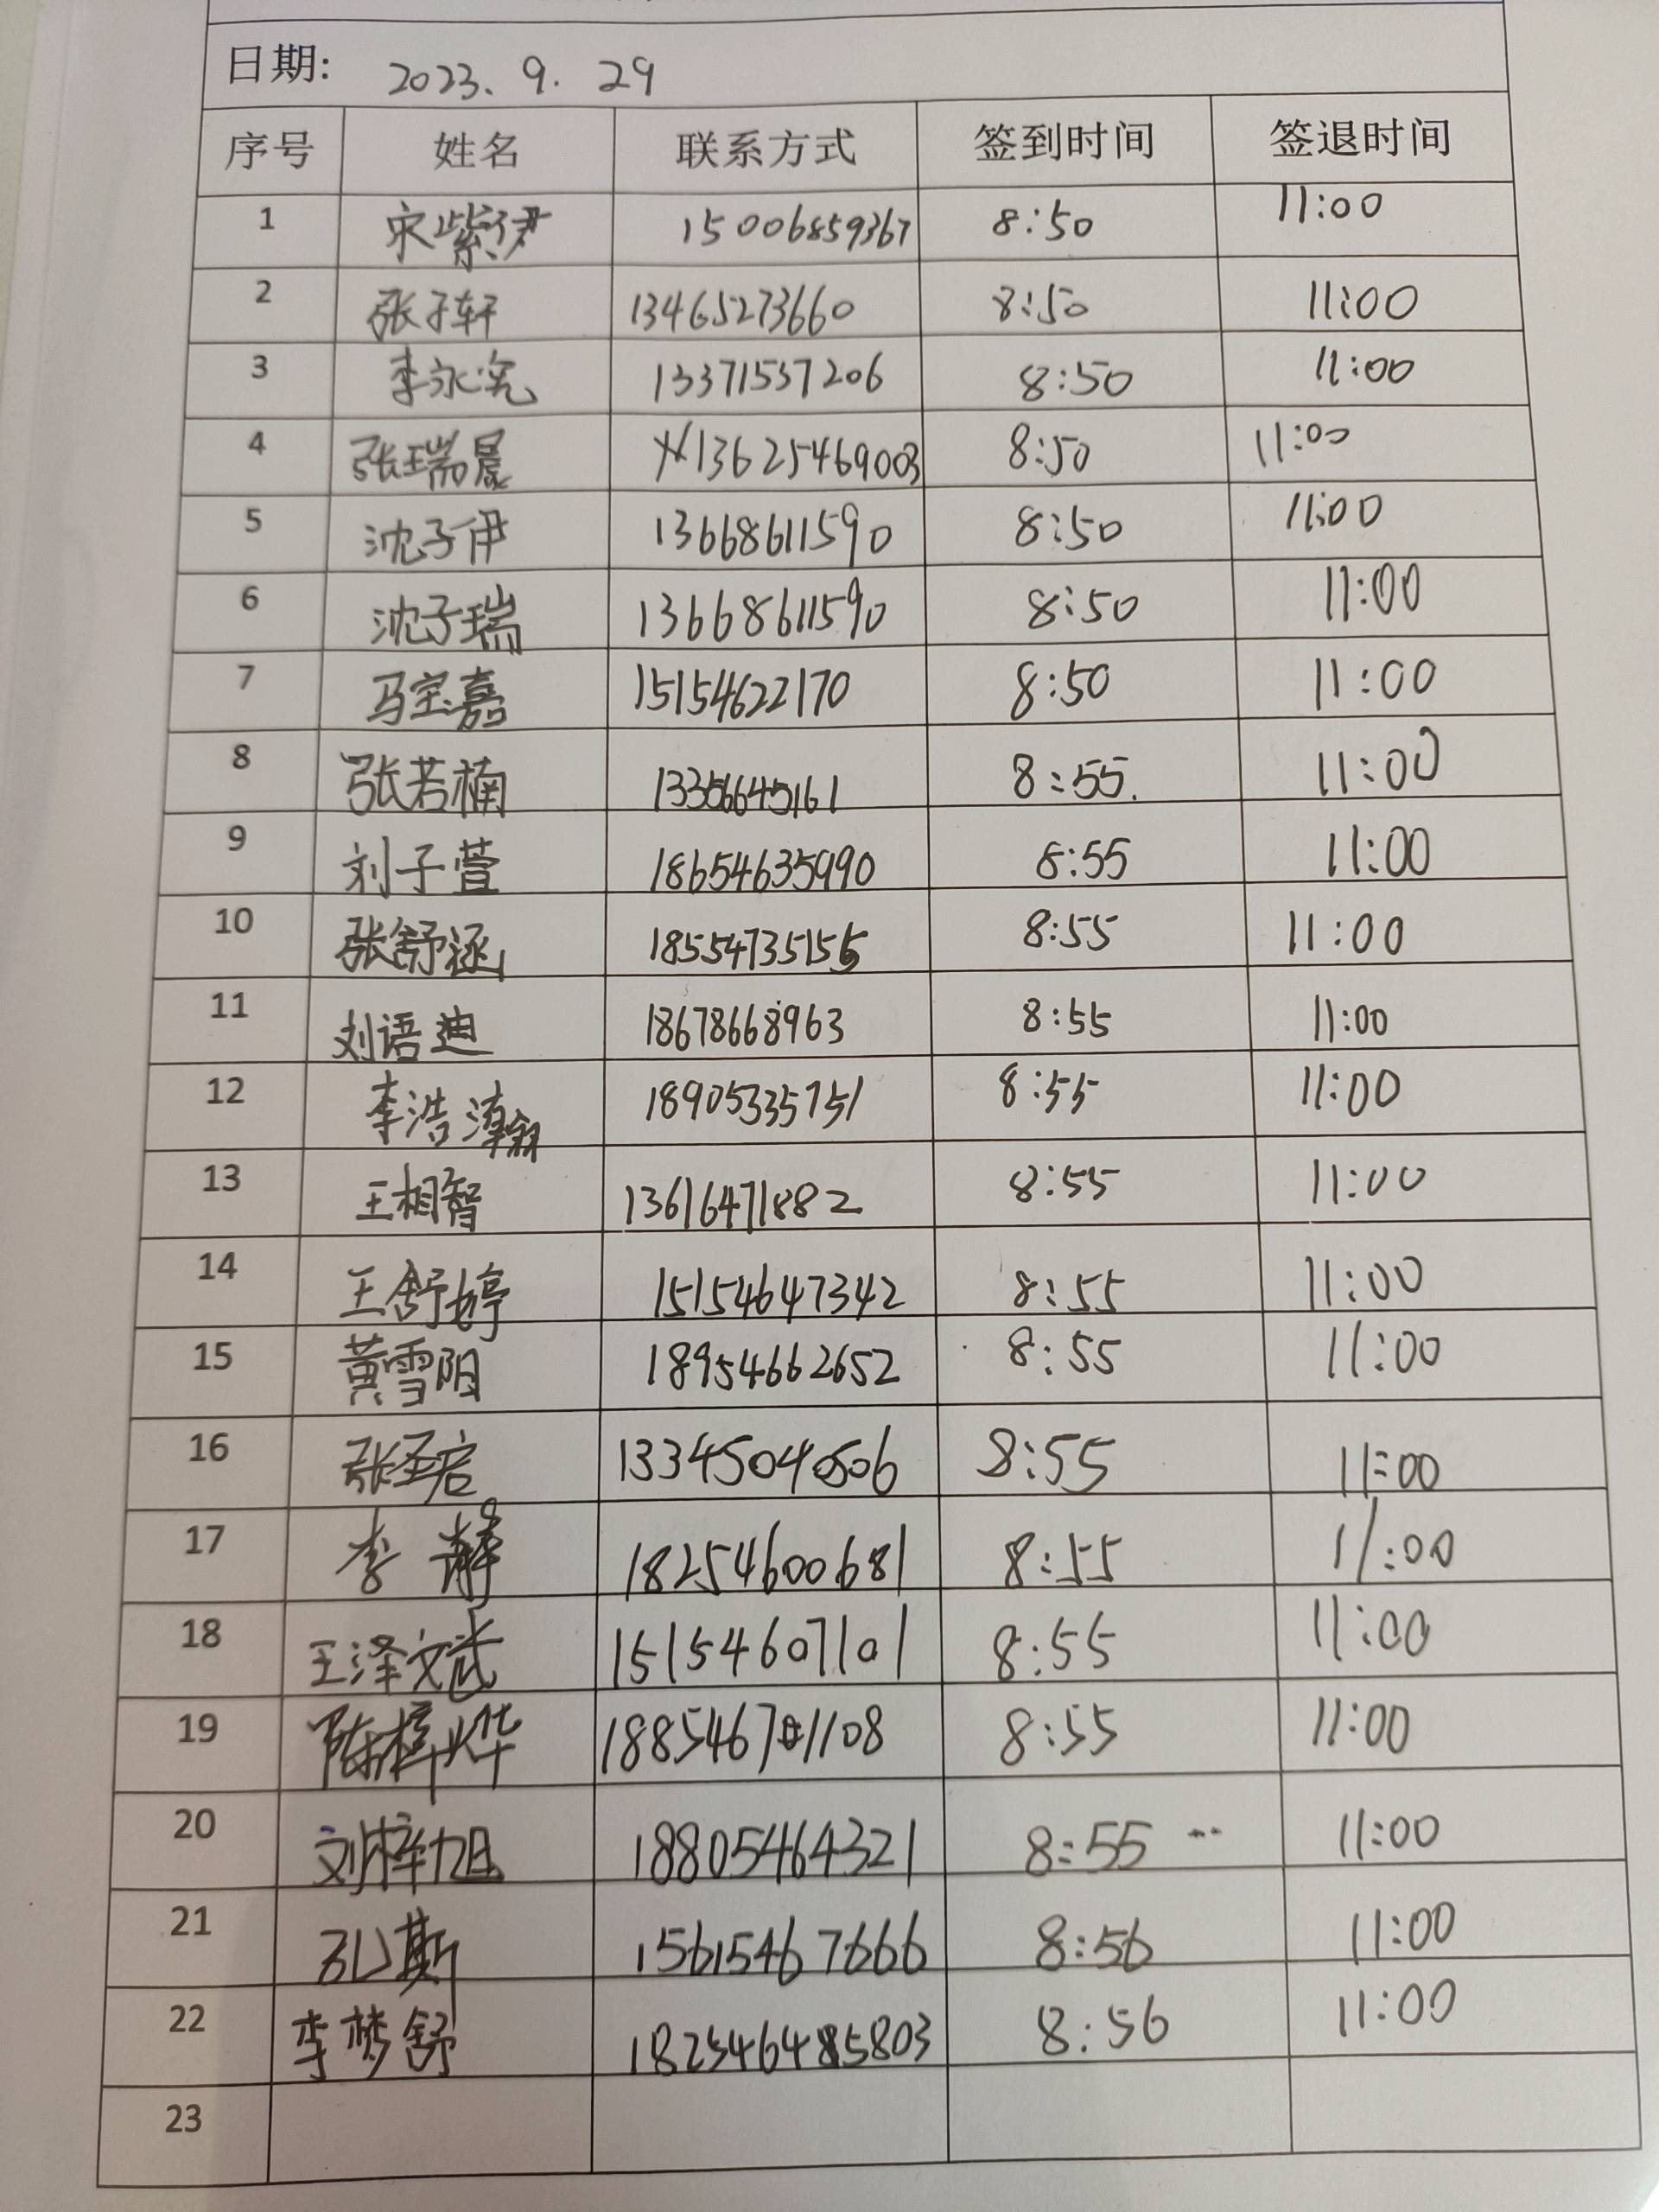 日期: 2023. 9. 29
序号 姓名 联系方式 签到时间 签退时间
1 宋紫伊 15006859367 8:50 11:00
2 张子轩 13465273660 8:50 11:00
3 李永亮 13371537206 8:50 11:00
4 张瑞晨 13625469003 8:50 11:00
5 沈子伊 13668611590 8:50 11:00
6 沈子瑞 13668611590 8:50 11:00
7 马宝嘉 15154622170 8:50 11:00
8 张若楠 13356645161 8:55 11:00
9 刘子萱 18654635990 8:55 11:00
10 张舒涵 18554735155 8:55 11:00
11 刘语迪 18678668963 8:55 11:00
12 李浩瀚 18905335751 8:55 11:00
13 王相智 13616471882 8:55 11:00
14 王舒婷 15154647342 8:55 11:00
15 黄雪阳 18954662652 8:55 11:00
16 张圣启 13345040506 8:55 11:00
17 李静 18254600681 8:55 11:00
18 王泽文武 15154607101 8:55 11:00
19 陈梓烨 18854671108 8:55 11:00
20 刘梓旭 18805464321 8:55 11:00
21 孔斯 15615467666 8:56 11:00
22 李梦舒 8:56 11:00
23